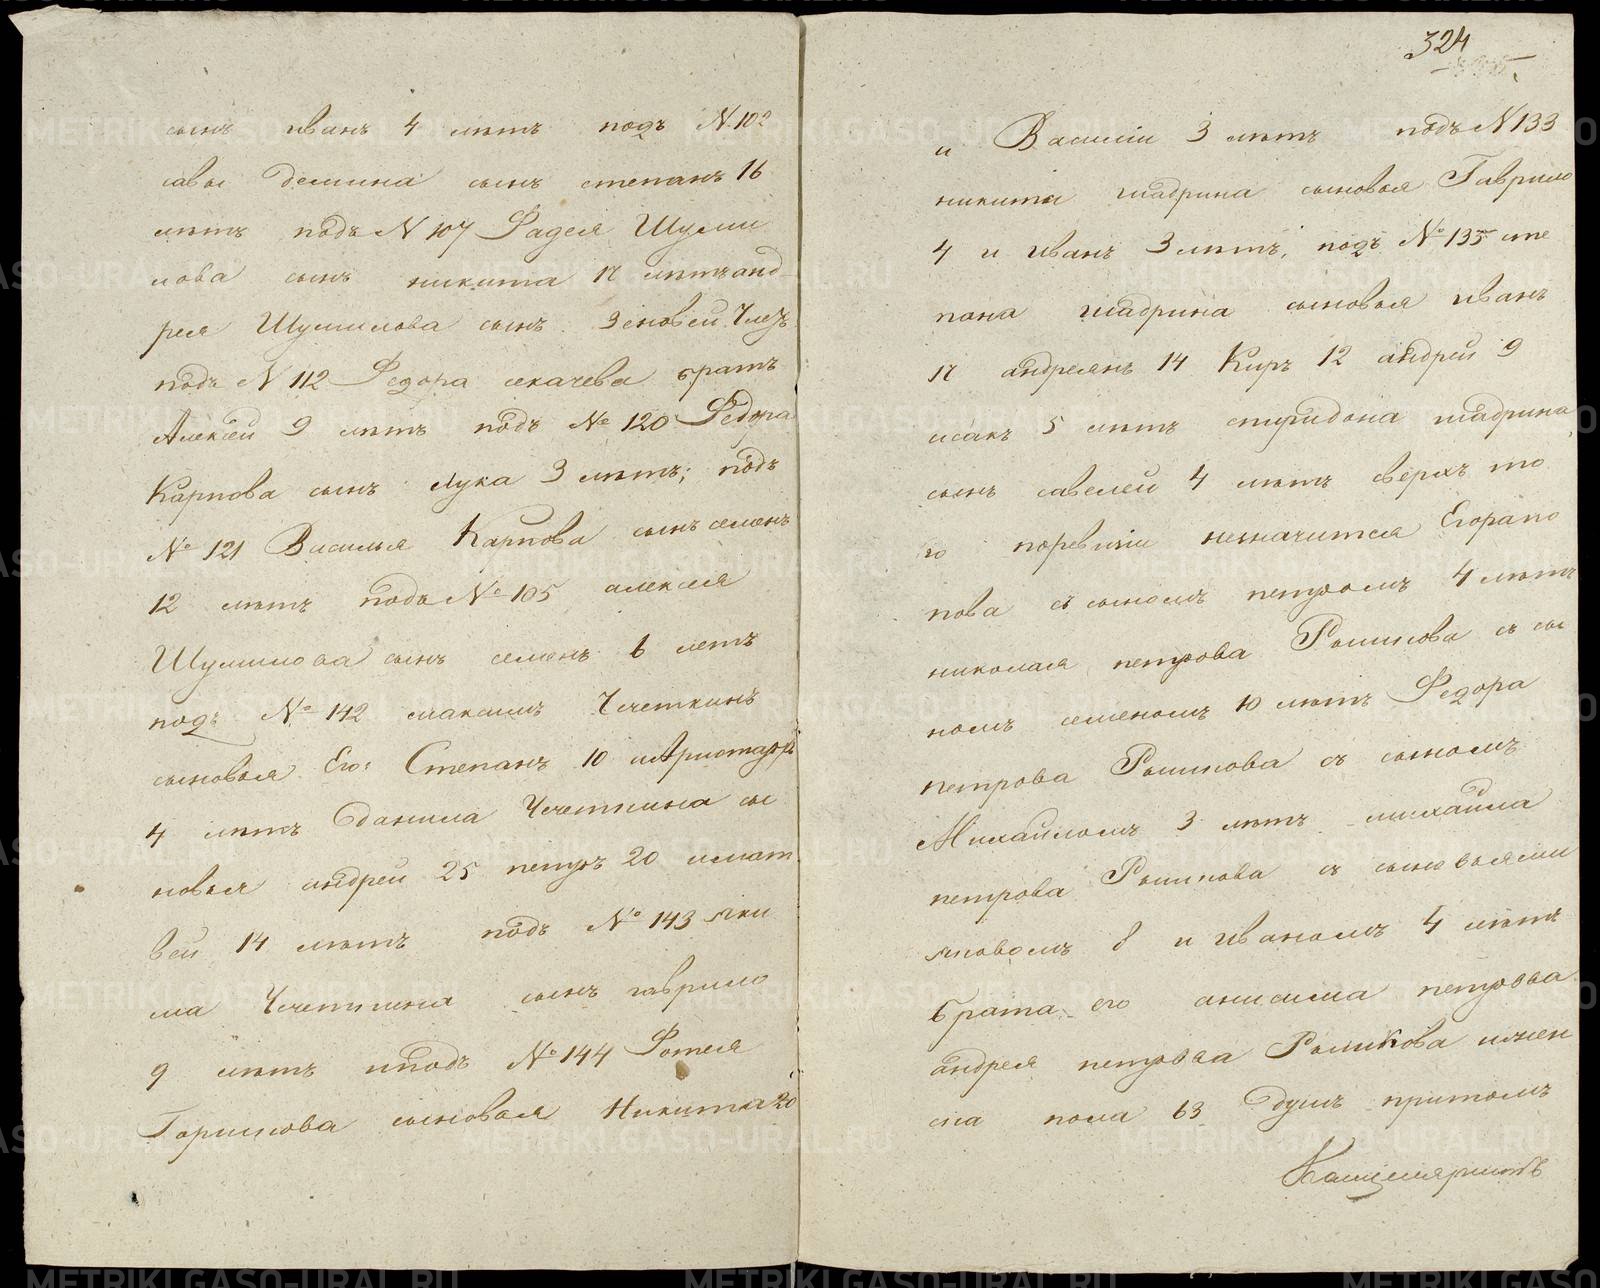 сынъ иванъ 4 лѣтъ подъ N 102
савы демина сынъ степанъ 16
лѣтъ подъ N 107 Фадея Шуми
лова сынъ никита 17 лѣтъ анд
рея Шумилова сынъ Зеновей
подъ N 112 Федора секачева братъ
Алексей 9 лѣтъ подъ № 120 Федора
Карпова сынъ лука 3 лѣтъ; подъ
№ 121 Василья Карпова сынъ семенъ
12 лѣтъ подъ № 105 алексея
Шумилова сынъ семенъ 6 летъ
подъ № 142 максимъ Чечеткинъ
сыновья Его: Степанъ 10 и Аристархъ
4 лѣтъ данила Чечеткина сы
новья андрей 25 петръ 20 и мат
вей 14 лѣтъ подъ № 143 яки
ма Чечеткина сынъ гаврило
9 лѣтъ и подъ № 144 Фотея
Горшкова сыновья Никита 20
324
и Василіи 3 лѣтъ подъ N 133
никита шадрина сыновья Гаврило
4 и иванъ 3 лѣтъ, подъ № 135 сте
пана шадрина сыновья иванъ
17 андреянъ 14 Киръ 12 андрей 9
исакъ 5 лѣтъ спиридона шадрина
сынъ савелей 4 лѣтъ сверхъ то
го поревизіи незначится Егора по
пова съ сыномъ петромъ 4 лѣтъ
николая петрова съ сы
номъ семеномъ 10 лѣтъ Федора
петрова съ сыномъ
Михайломъ 3 лѣтъ михайла
петрова съ сыновьями
яковомъ 8 и Иваномъ 4 лѣтъ
брата его анисима петрова
андрея петрова
ска пола 63 душъ притомъ
Канцеляристъ
METRIKI.GASO-URAL.RU